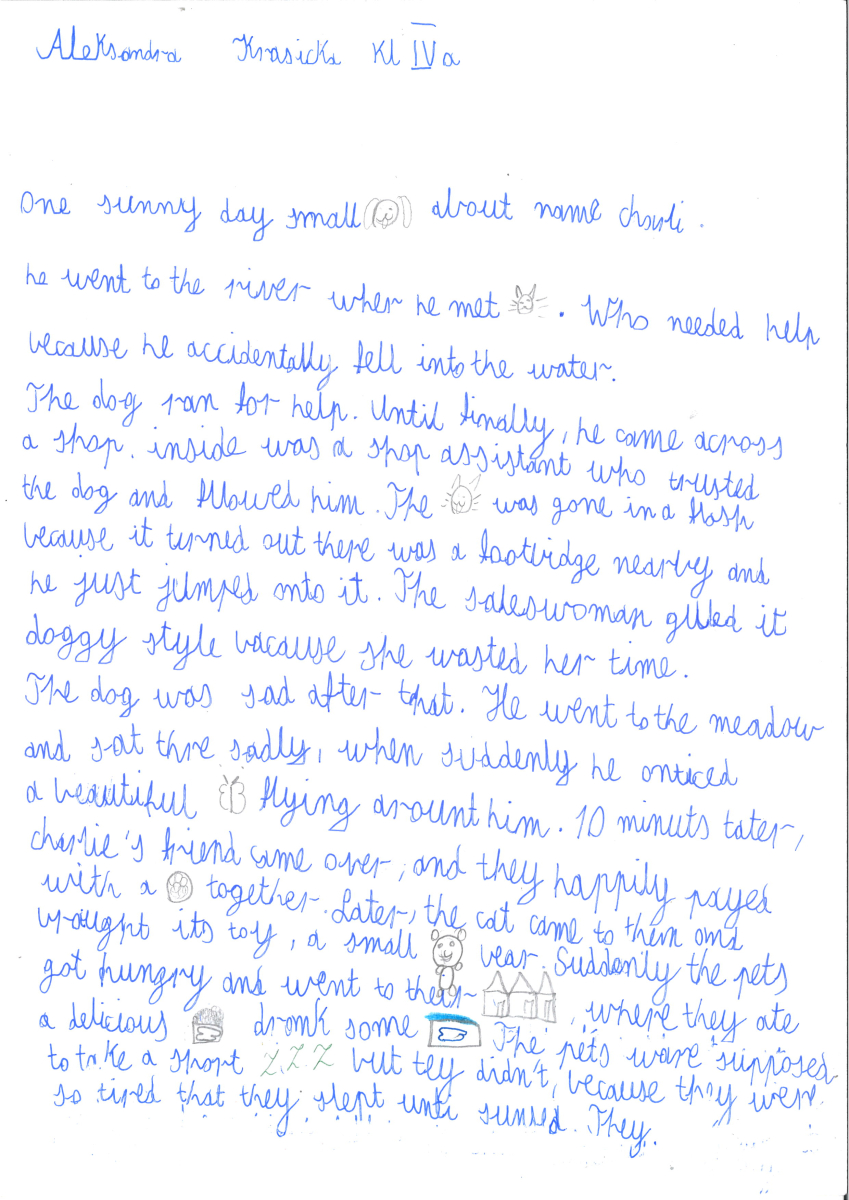 Aleksandra Krasicka Kl IV a
One sunny day small about name charli.
he went to the river wher he met . Who needed help
because he accidentally fell into the water.
The dog ran for help. Until finally, he came across
a shop. inside was a shop assistant who trusted
the dog and fllowed him. The was gone in a flash
because it turned out there was a footbridge nearby and
he just jumped onto it. The saleswoman it
doggy style bacause she wasted her time.
The dog was sad after that. He went to the meadow
and sat thre sadly, when suddenly he onticed
a beautiful flying arount him. 10 minuts tater,
charlie's friend came over, and they happily payed
with a together. Later, the cat came to them and
brought its toy, a small bear. Suddenly the pets
got hungry and went to their , where they ate
a delicious drank some The pets ware supposed
to take a short Z.Z.Z but tey didn't, because they were
so tired that they slept until sunsed. They.